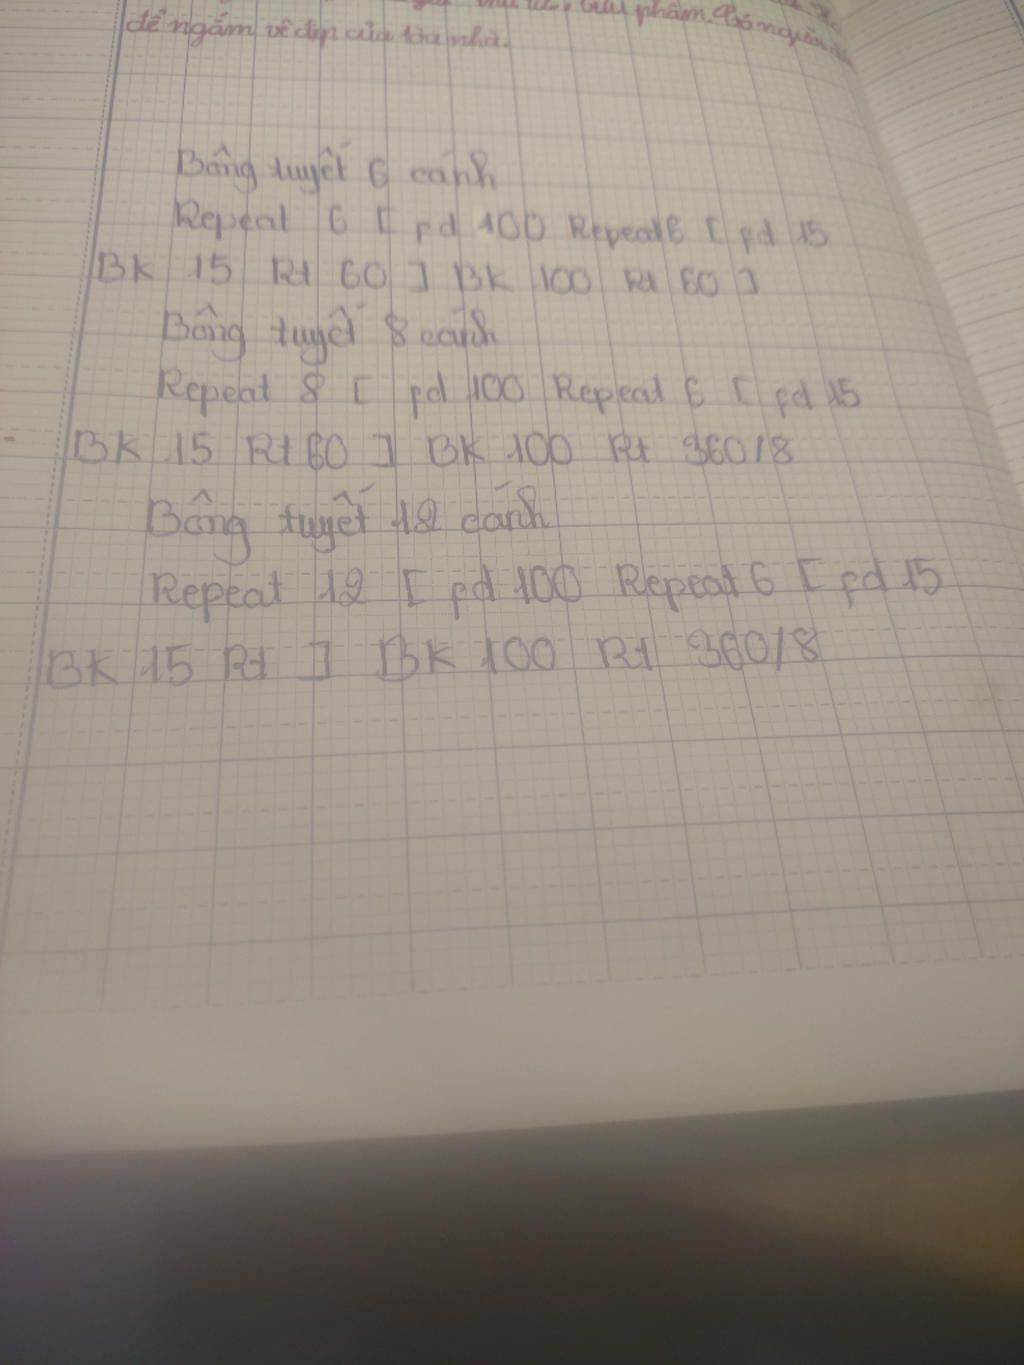 phẩm.
để ngắm vẻ đẹp của tòa nhà.
Bông tuyết 6 cánh
Repeat 6 [ fd 100 Repeat 6 [ fd 15
BK 15 Rt 60 ] BK 100 Rt 60 ]
Bông tuyết 8 cánh
Repeat 8 [ fd 100 Repeat 6 [ fd 15
BK 15 Rt 60 ] BK 100 Rt 360/8
Bông tuyết 12 cánh
Repeat 12 [ fd 100 Repeat 6 [ fd 15
BK 15 Rt ] BK 100 Rt 360/8